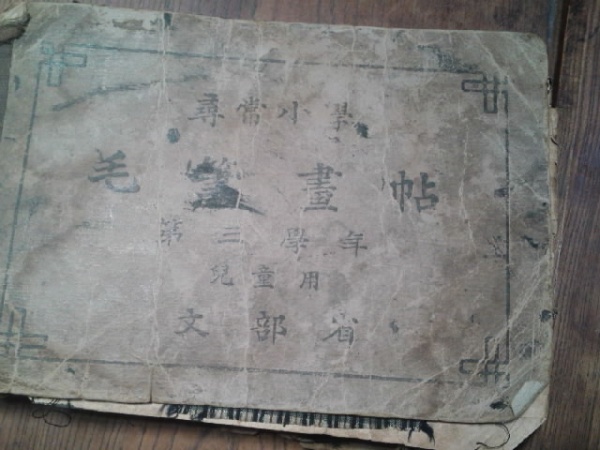 尋常小學
毛筆畫帖
第三學年
兒童用
文部省